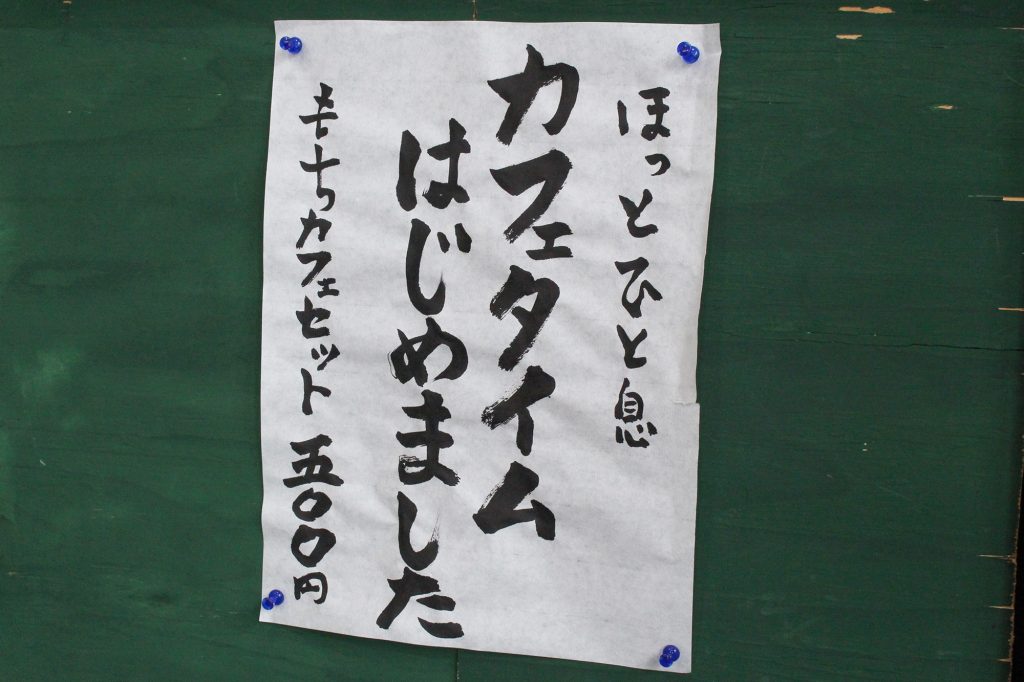 ほっとひと息
カフェタイム
はじめました
もちカフェセット 五〇〇円